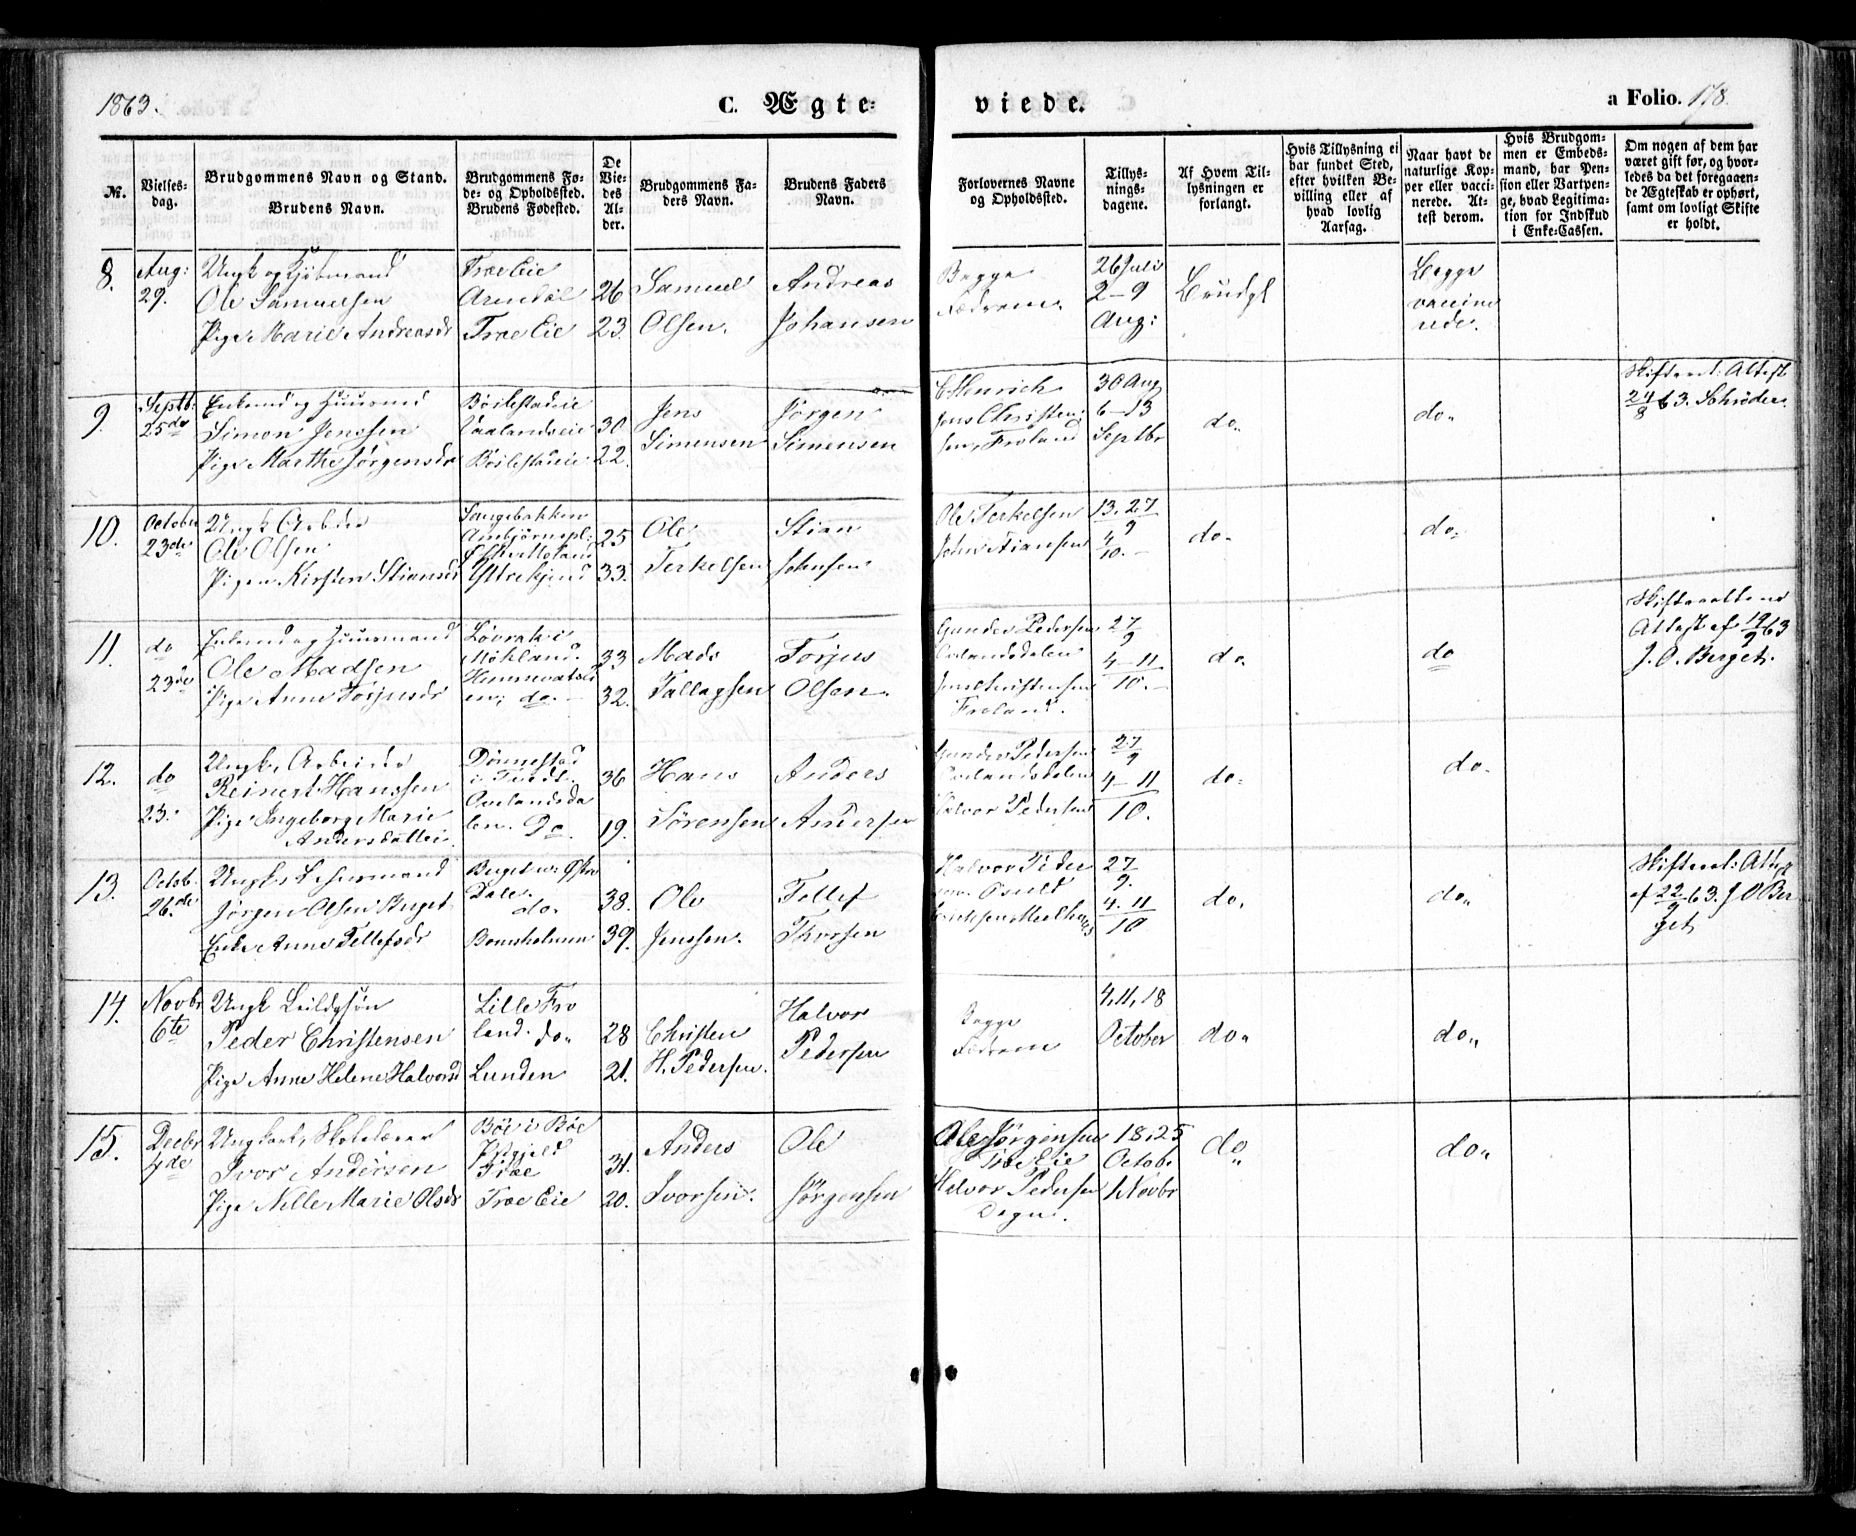 1863.
C. Ægte-
viede.
a Folio. 178.
№.
Vielses-
dag.
Brudgommens Navn og Stand.
Brudens Navn.
Brudgommens Fø-
de- og Opholdssted.
Brudens Fødested.
De
Vie-
des
Al-
der.
Brudgommens Fa-
ders Navn.
Brudens Faders
Navn.
Forlovernes Navne
og Opholdssted.
Tillys-
nings-
dagene.
Af Hvem Til-
lysningen er
forlangt.
Hvis Tillysning ei
har fundet Sted,
efter hvilken Be-
villing eller af
hvad lovlig
Aarsag.
Naar havt de
naturlige Kop-
per eller vacci-
nerede. At-
test derom.
Hvis Brudgom-
men er Embeds-
mand, har Pen-
sion eller Vartpen-
ge, hvad Legitima-
tion for Indskud
i Enke-Cassen.
Om nogen af dem har
været gift før, og hvor-
ledes da det foregaaen-
de Ægteskab er ophørt,
samt om lovligt Skifte
er holdt.
8.
Aug:
29.
Ungk og
Ole Samuelsen
Pige Marie Andreasdr
Træ Eie
Arendal
Træ Eie
26
23.
Samuel
Olsen.
Andreas
Johansen
Begge
Fædrene.
26 Juli
2-9
Aug:
Brudgt
Begge
vaccine
rede.
9
Septb:
25de
Enkemd og Huusmd
Simon Jenssen
Pige Marthe Jørgensdr
Bøilestadeie
Bøilestadeie
30.
22.
Jens
Simensen
Jørgen
Simensen
Henrich
Jens Christen-
sen, Froland
30 Aug
6-13
Septbr
do.
do.
Skifteret: Attest
24/8 63. Schrøder.
10.
Octobr
23de
Ungk Arbeider
Ole Olsen
Pigen Kirsten Stiansdr
25
33.
Ole
Terkelsen
Stian
Johnsen
Ole Terkelsen
John Stiansen
13.27/9
4/10.-
do.
do.
11.
do
23de
Enkemd og Huusmand
Ole Madsen
Pige Anne Torjusdr
33
32.
Mads
Tallagsen
Torjus
Olsen.
Gunder Pedersen
Ovelandsdalen
Jens Christensen
Froland.
27/9
4-11/10.-
do.
do
Skifterettens
Attest af 19/9 63
J. O. Berget.
12.
do
23.
Ungk. Arbeider
Reinert Hanssen
Pige Ingeborg Marie
Andersdatter.
Ovelandsda
len. Do.
36
19.
Hans
Sørensen
Anders
Andersen
Gunder Pedersen
Ovelandsdalen
Halvor Pedersen
27/9
4-11
10.
do.
do.
13.
Octob.
26.de
Ungk.
Jørgen Olsen Berget
Enke Anne Tellefsdr
Berget
Dale.
do.
Bomsholmen
38.
39.
Ole
Jenssen.
Tellef
Thorsen
Halvor Peder
sen
27
9.
4.11
10
do.
do.
Skifteret: Attest
af 22/9 63. J O Ber
get.
14.
Novbr
6te
Ungk Leildgsøn
Peder Christensen
Pige Anne Helene Halvorsd
Lille Fro
land. do.
Lunden
28
21.
Christen
H. Pedersen.
Halvor
Pedersen
Begge
Fædrene
4, 11, 18
October
do.
do.
15.
Decbr
4de
Ungkarl, Skolelærer
Ivor Andersen
Pige Nille Marie Olsdr
Bøe i Bøe
Træ
Træ Eie
31.
20.
Anders
Ivorsen.
Ole
Jørgensen
Ole Jørgensen
Træ Eie
Halvor Pedersen
18.25
Octobr
1 Novbr
do
do.